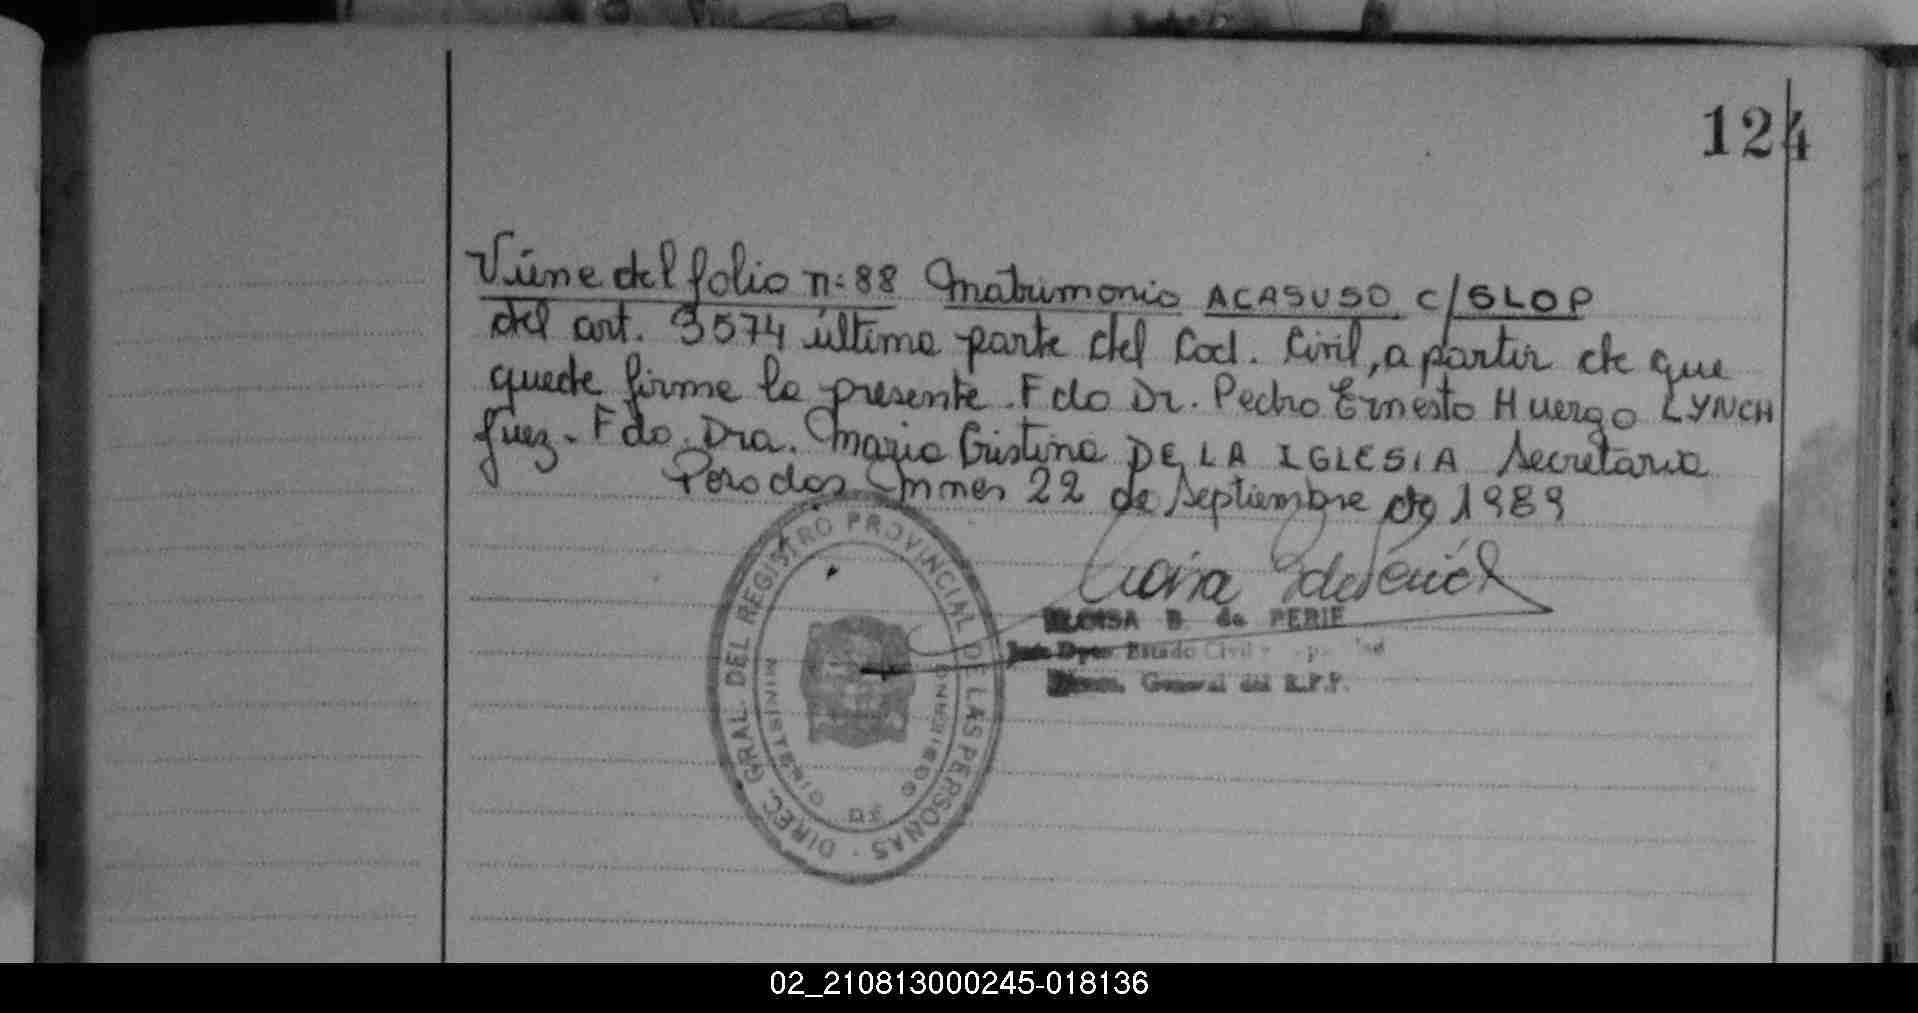 124
Viene del folio n: 88 Matrimonio ACASUSO c/SLOP
del art. 3574 última parte del Cod. Civil, a partir de que
quede firme la presente. Fdo Dr. Pedro Ernesto Huergo LYNCH
Juez. Fdo. Dra. Maria Cristina DE LA IGLESIA Secretaria
Posadas Mnes 22 de Septiembre de 1989
ELOISA B. de PERIE
Estado Civil
General del R.P.P.
DIREC. GRAL. DEL REGISTRO PROVINCIAL DE LAS PERSONAS
MINISTERIO DE GOBIERNO
02_210813000245-018136